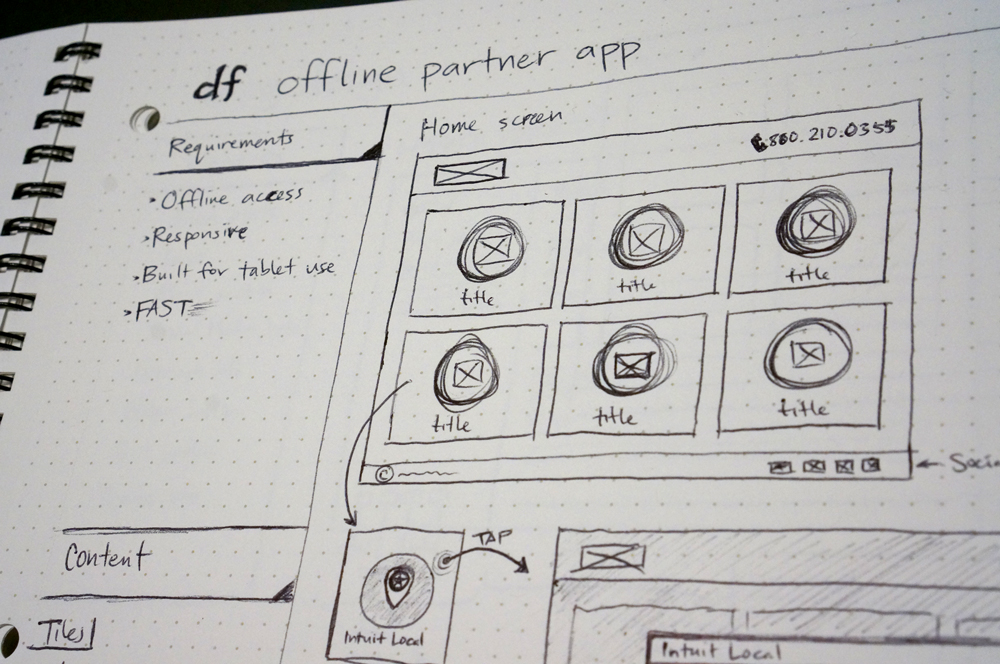 df offline partner app
Requirements
Offline access
Responsive
Built for tablet use
FAST
Home screen
title
title
title
title
title
title
©
Content
Tiles
TAP
Intuit Local
Intuit Local